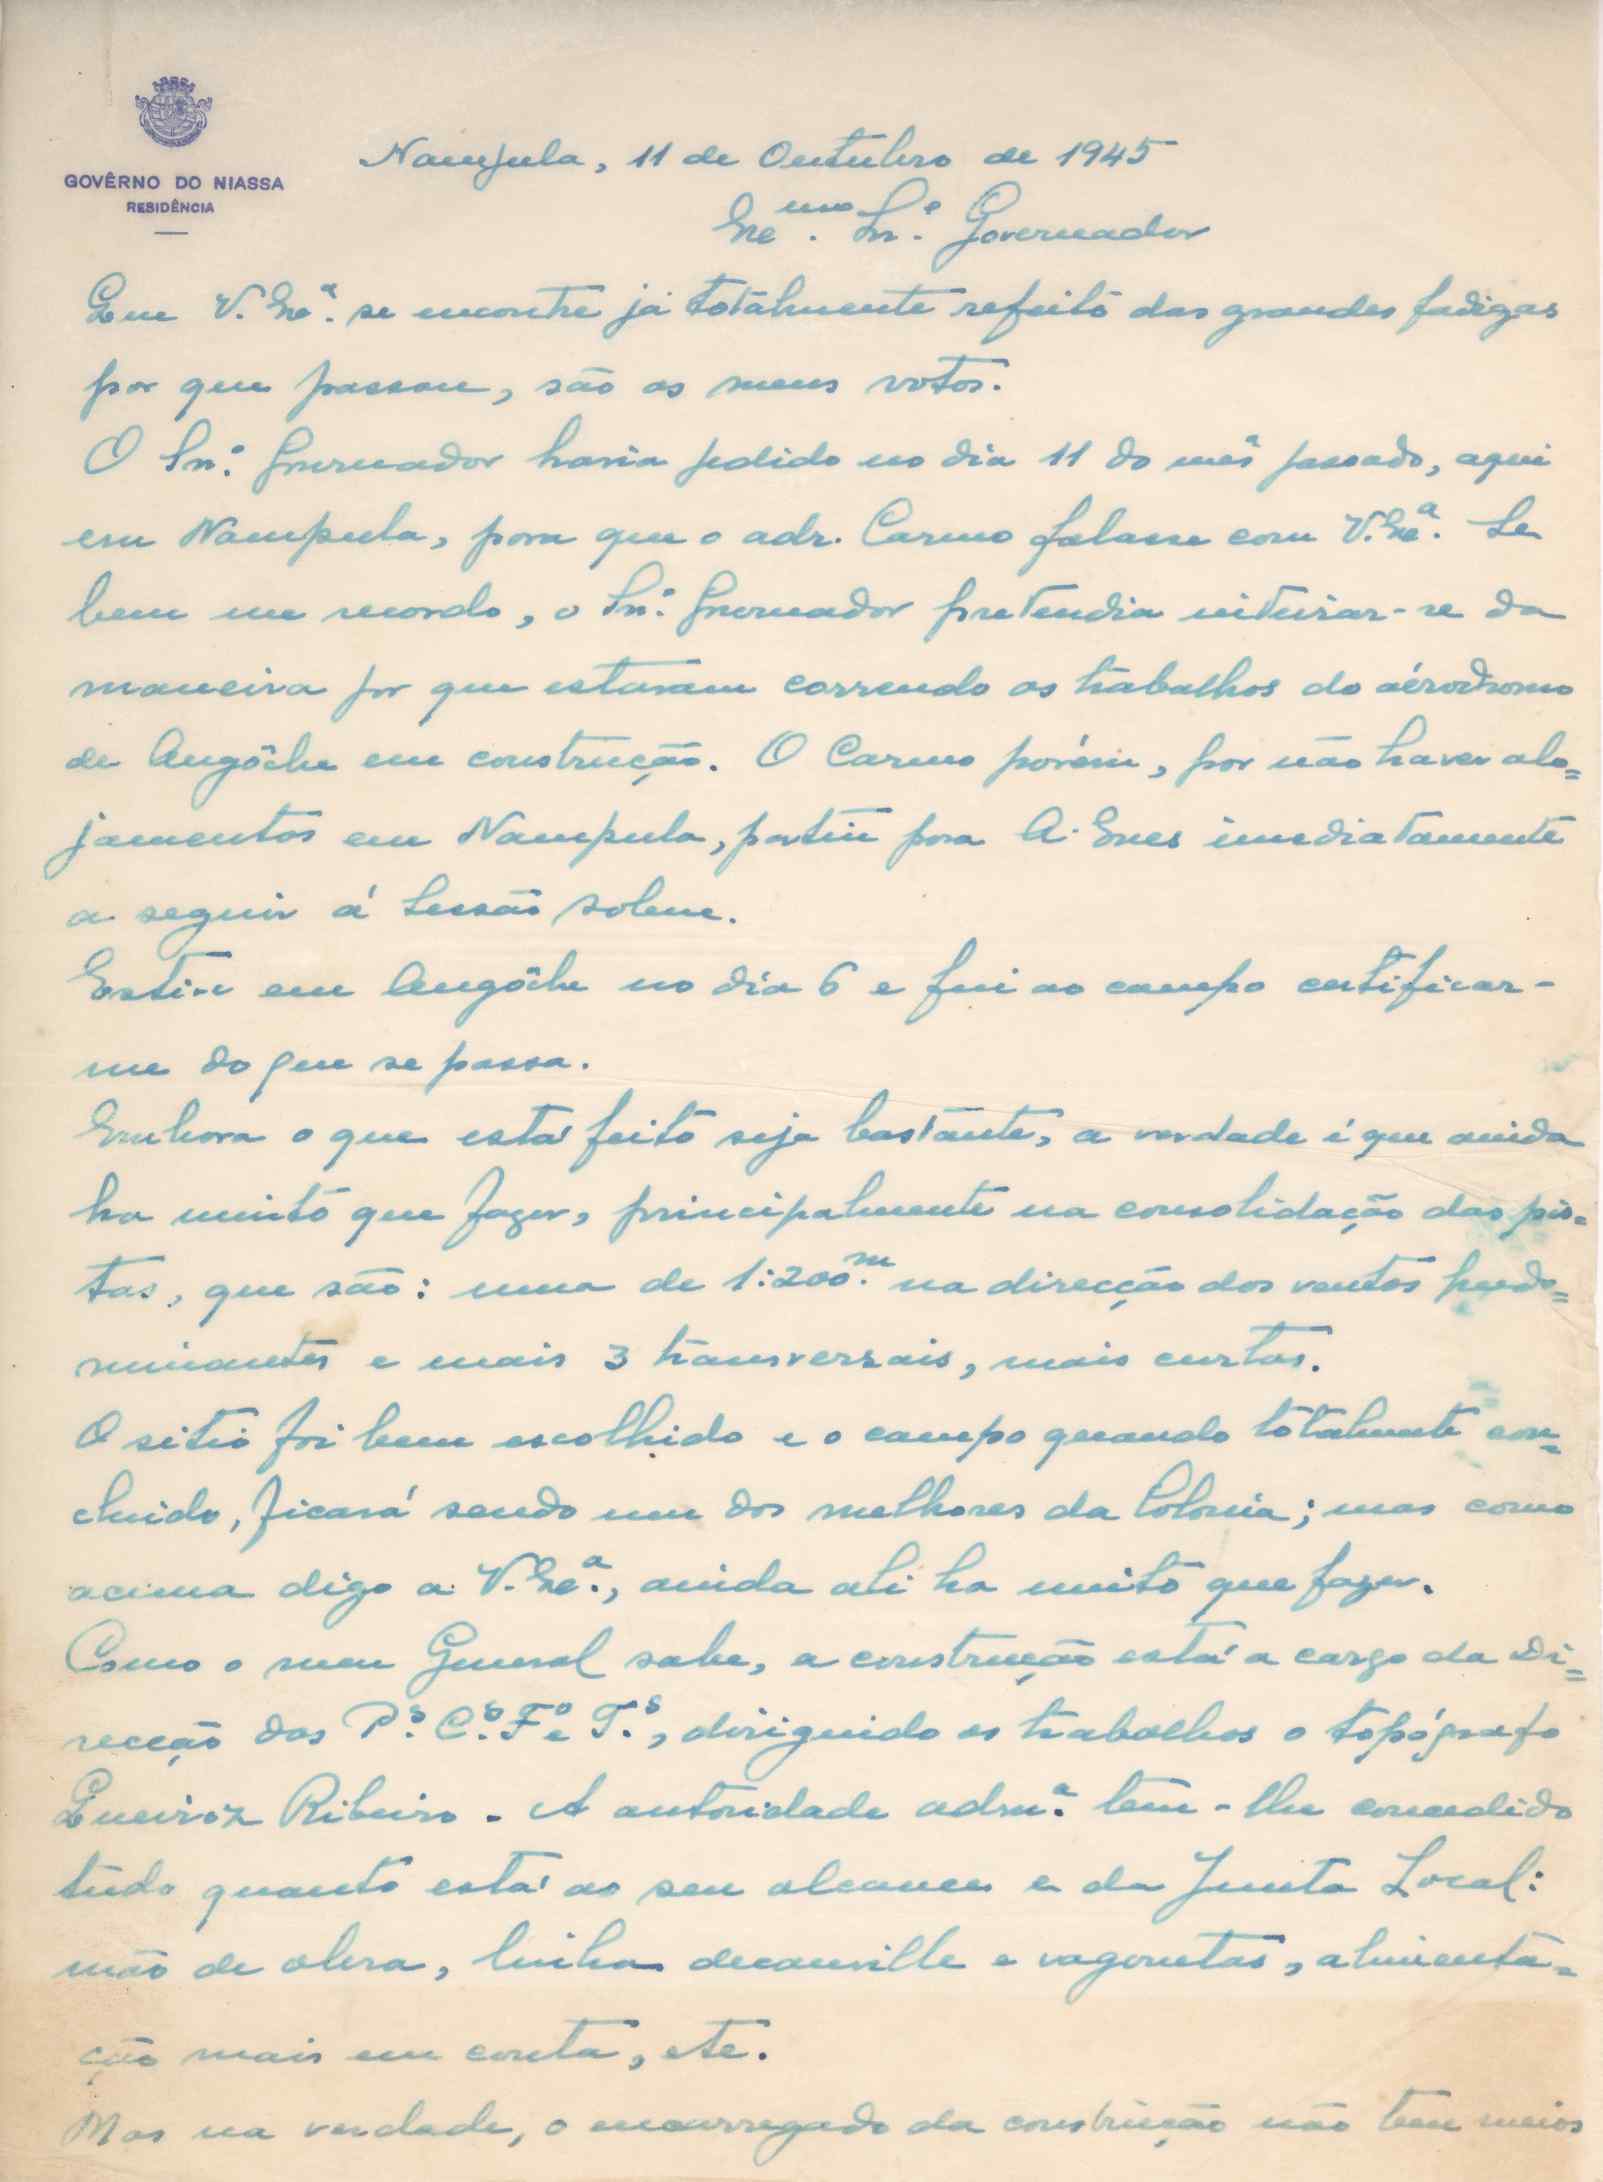 GOVÊRNO DO NIASSA
RESIDÊNCIA
Nampula, 11 de Outubro de 1945
Exc.mo Sn.r Governador
Que V. Exc.ª se encontre já totalmente refeito das grandes fadigas
por que passou, são os meus votos.
O Sn.r Governador havia pedido no dia 11 do mês passado, aqui
em Nampula, para que o adr. Carmo falasse com V. Exc.ª. Se
bem me recordo, o Sn.r Governador pretendia inteirar-se da
maneira por que estavam correndo os trabalhos do aérodromo
de Angôche em construção. O Carmo porém, por não haver alo=
jamentos em Nampula, partiu para A. Enes imediatamente
a seguir á Sessão solene.
Estive em Angôche no dia 6 e fui ao campo certificar-
me do que se passa.
Embora o que está feito seja bastante, a verdade é que ainda
ha muito que fazer, principalmente na consolidação das pis=
tas, que são: uma de 1:200.m na direcção dos ventos predo=
minantes e mais 3 transversais, mais curtas.
O sitio foi bem escolhido e o campo quando totalmente con=
cluido, ficará sendo um dos melhores da Colonia; mas como
acima digo a V. Exc.ª, ainda ali ha muito que fazer.
Como o meu General sabe, a construção está a cargo da Di=
recção dos P.s C.s F.o e T.s, diriguindo os trabalhos o topógrafo
Queiroz Ribeiro. A autoridade adm.a tem-lhe concedido
tudo quanto está ao seu alcance e da Junta Local:
mão de obra, linha decauville e vagonetas, alimenta=
ção mais em conta, etc.
Mas na verdade, o encarregado da construção não tem meios